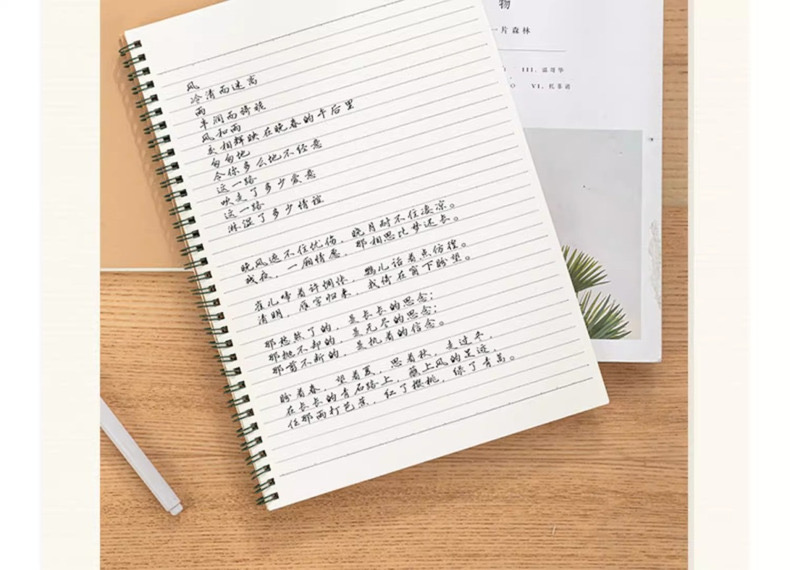 风
冷清而迷离
雨
丰润而旖旎
风和雨
交相辉映在晚春的午后里
匆匆地
令你多么地不经意
这一路
吹走了多少爱意
这一路
淋湿了多少情谊
晚风遮不住忧伤，晚月耐不住凄凉。
残夜，一厢情愿，那相思比梦还长。
雀儿啼着许惆怅，鹦儿沾着点仿徨。
清明，雁字归来，我倚在窗下盼望。
那悠然了的，是长长的思念；
那挑不却的，是无尽的思念；
那剪不断的，是执着的信念。
盼着春，望着夏，思着秋，走过冬，
在长长的青石路上，踏上风的足迹，
任那雨打芭蕉，红了樱桃，绿了青鸟。
物
一片森林
III. 温哥华
O
VI. 托菲诺